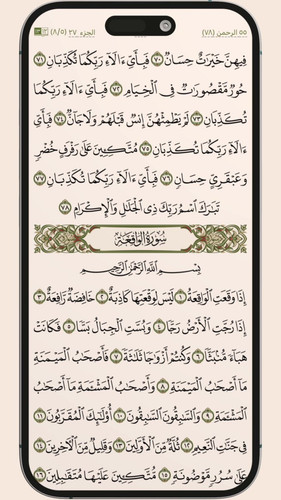 ٥٥ الرحمن (٧٨) الجزء ٢٧ (٨/٥)
فِيهِنَّ خَيْرَٰتٌ حِسَانٌ ٧٠ فَبِأَىِّ ءَالَآءِ رَبِّكُمَا تُكَذِّبَانِ ٧١
حُورٌ مَّقْصُورَٰتٌ فِى ٱلْخِيَامِ ٧٢ فَبِأَىِّ ءَالَآءِ رَبِّكُمَا
تُكَذِّبَانِ ٧٣ لَمْ يَطْمِثْهُنَّ إِنسٌ قَبْلَهُمْ وَلَا جَآنٌّ ٧٤ فَبِأَىِّ
ءَالَآءِ رَبِّكُمَا تُكَذِّبَانِ ٧٥ مُتَّكِـِٔينَ عَلَىٰ رَفْرَفٍ خُضْرٍ
وَعَبْقَرِىٍّ حِسَانٍ ٧٦ فَبِأَىِّ ءَالَآءِ رَبِّكُمَا تُكَذِّبَانِ ٧٧
تَبَٰرَكَ ٱسْمُ رَبِّكَ ذِى ٱلْجَلَٰلِ وَٱلْإِكْرَامِ ٧٨
سُورَةُ الوَاقِعَةِ
بِسْمِ ٱللَّهِ ٱلرَّحْمَٰنِ ٱلرَّحِيمِ
إِذَا وَقَعَتِ ٱلْوَاقِعَةُ ١ لَيْسَ لِوَقْعَتِهَا كَاذِبَةٌ ٢ خَافِضَةٌ رَّافِعَةٌ ٣
إِذَا رُجَّتِ ٱلْأَرْضُ رَجًّا ٤ وَبُسَّتِ ٱلْجِبَالُ بَسًّا ٥ فَكَانَتْ
هَبَآءً مُّنۢبَثًّا ٦ وَكُنتُمْ أَزْوَٰجًا ثَلَٰثَةً ٧ فَأَصْحَٰبُ ٱلْمَيْمَنَةِ
مَآ أَصْحَٰبُ ٱلْمَيْمَنَةِ ٨ وَأَصْحَٰبُ ٱلْمَشْـَٔمَةِ مَآ أَصْحَٰبُ
ٱلْمَشْـَٔمَةِ ٩ وَٱلسَّٰبِقُونَ ٱلسَّٰبِقُونَ ١٠ أُو۟لَٰٓئِكَ ٱلْمُقَرَّبُونَ ١١
فِى جَنَّٰتِ ٱلنَّعِيمِ ١٢ ثُلَّةٌ مِّنَ ٱلْأَوَّلِينَ ١٣ وَقَلِيلٌ مِّنَ ٱلْءَاخِرِينَ ١٤
عَلَىٰ سُرُرٍ مَّوْضُونَةٍ ١٥ مُّتَّكِـِٔينَ عَلَيْهَا مُتَقَٰبِلِينَ ١٦